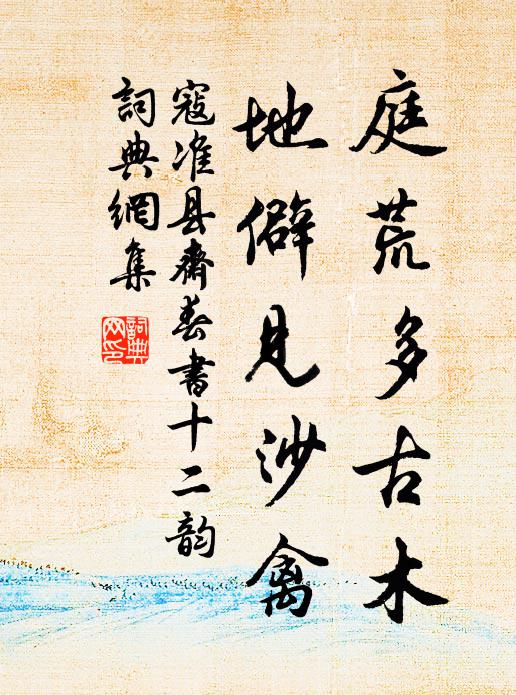 庭荒多古木
地僻見沙禽
寇准县齋春書十二韵
詞典網集
詞典
网印